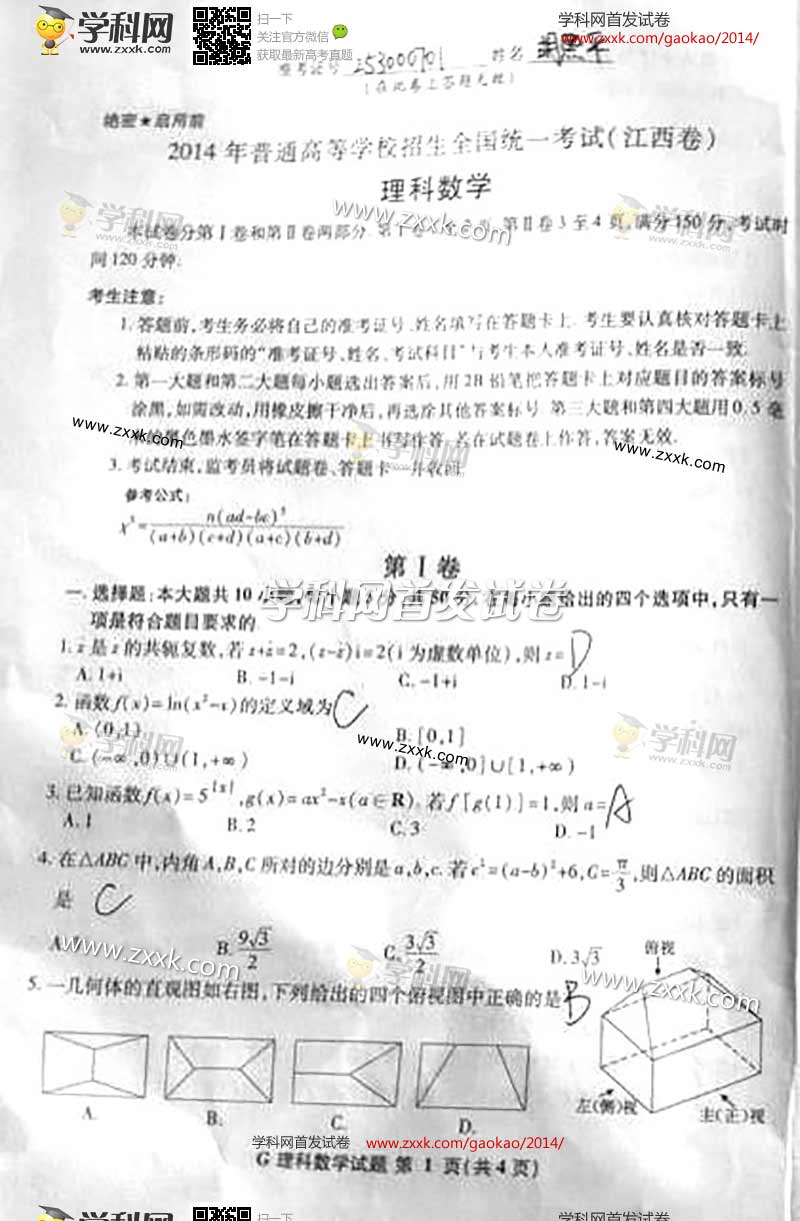 学科网
www.zxxk.com
扫一下
关注官方微信
获取最新高考真题
学科网首发试卷
www.zxxk.com/gaokao/2014/
253000701 姓名
(在此卷上答题无效)
绝密★启用前
2014年普通高等学校招生全国统一考试(江西卷)
理科数学
本试卷分第Ⅰ卷和第Ⅱ卷两部分. 第Ⅱ卷3至4页,满分150分,考试时
间120分钟.
考生注意:
1.答题前,考生务必将自己的准考证号、姓名填写在答题卡上.考生要认真核对答题卡上
粘贴的条形码的“准考证号、姓名、考试科目”与考生本人准考证号、姓名是否一致.
2.第一大题和第二大题每小题选出答案后,用2B铅笔把答题卡上对应题目的答案标号
涂黑,如需改动,用橡皮擦干净后,再选涂其他答案标号.第三大题和第四大题用0.5毫
米的黑色墨水签字笔在答题卡上书写作答.若在试题卷上作答,答案无效.
3.考试结束,监考员将试题卷、答题卡一并收回.
参考公式:
x²=n(ad-bc)²/(a+b)(c+d)(a+c)(b+d)
第Ⅰ卷
一.选择题:本大题共10小题,每小题5分,共50分.在每小题给出的四个选项中,只有一
项是符合题目要求的.
1. z̄是z的共轭复数,若z+z̄=2,(z-z̄)i=2(i为虚数单位),则z= D
A.1+i B.-1-i C.-1+i D.1-i
2.函数f(x)=ln(x²-x)的定义域为 C
A.(0,1) B.[0,1]
C.(-∞,0)∪(1,+∞) D.(-∞,0]∪[1,+∞)
3.已知函数f(x)=5^|x|,g(x)=ax²-x(a∈R).若f[g(1)]=1,则a= A
A.1 B.2 C.3 D.-1
4.在△ABC中,内角A,B,C所对的边分别是a,b,c.若c²=(a-b)²+6,C=π/3,则△ABC的面积
是 C
A. B.9√3/2 C.3√3/2 D.3√3
5.一几何体的直观图如右图,下列给出的四个俯视图中正确的是 B
俯视
左(侧)视 主(正)视
A. B. C. D.
学科网首发试卷 www.zxxk.com/gaokao/2014/
G 理科数学试题 第1页(共4页)
学科网
扫一下
学科网首发试卷